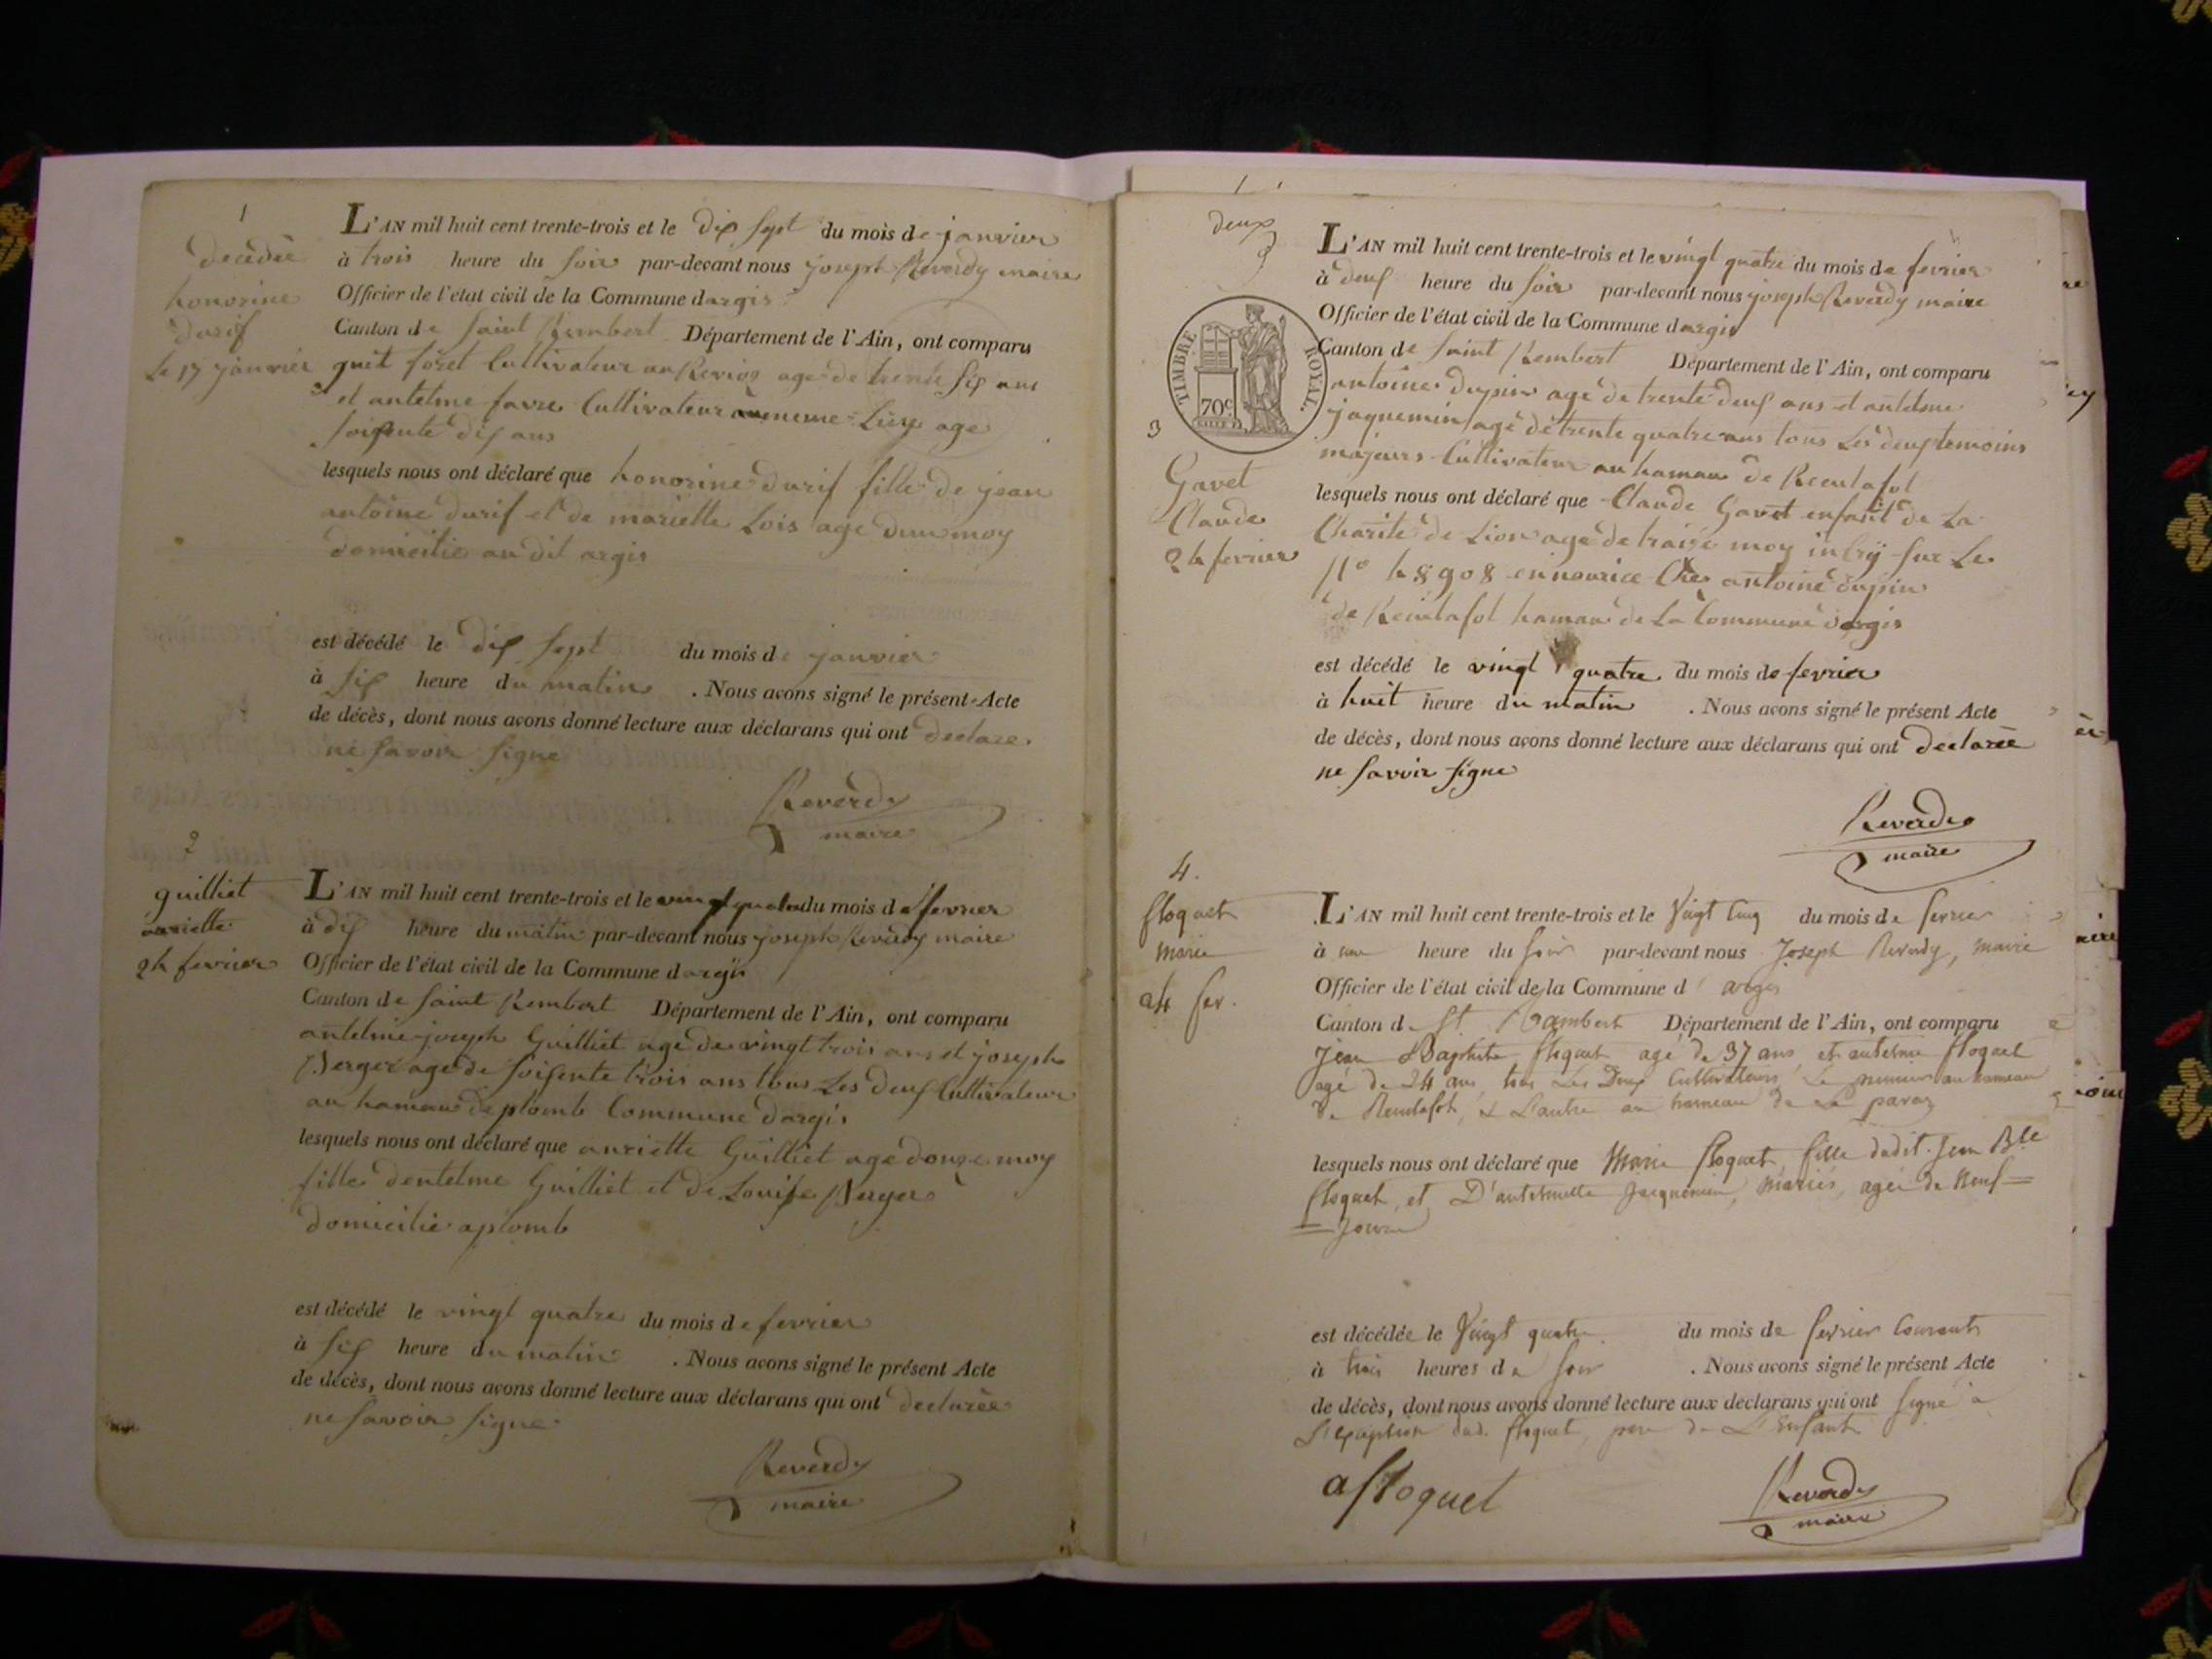 1
decedèe
honorine
durif
le 17 janvier
L'AN mil huit cent trente-trois et le dix sept du mois de janvier
à trois heure du soir par-devant nous joseph Reverdy maire
Officier de l'état civil de la Commune dargis
Canton de saint Rembert Département de l'Ain, ont comparu
cultivateur age de trente six ans
et antelme favre Cultivateur au meme Lieu age
soixente dix ans
lesquels nous ont déclaré que honorine durif fille de jean
antoine durif et de mariette Lois age dun moy
domicilie au dit argis
est décédé le dix sept du mois de janvier
à six heure du matin . Nous avons signé le présent Acte
de décès, dont nous avons donné lecture aux déclarans qui ont declare
ne savoir signe
Reverdy
maire
2
guilliet
anriette
24 fevrier
L'AN mil huit cent trente-trois et le vingt quatre du mois de fevrier
à dix heure du matin par-devant nous joseph Reverdy maire
Officier de l'état civil de la Commune dargis
Canton de saint Rembert Département de l'Ain, ont comparu
antelme joseph Guilliet age de vingt trois ans et joseph
Berger age de soixente trois ans tous Les deux Cultivateur
au hamau de plomb Commune dargis
lesquels nous ont déclaré que anriette Guilliet age donze moy
fille dentelme Guilliet et de Louise Berger
domicilie a plomb
est décédé le vingt quatre du mois de fevrier
à six heure du matin . Nous avons signé le présent Acte
de décès, dont nous avons donné lecture aux déclarans qui ont declarèe
ne savoir signe
Reverdy
maire
deux
TIMBRE ROYAL.
70c
3
Gavet
Claude
24 fevrier
L'AN mil huit cent trente-trois et le vingt quatre du mois de fevrier
à deux heure du soir par-devant nous joseph Reverdy maire
Officier de l'état civil de la Commune dargis
Canton de saint Rembert Département de l'Ain, ont comparu
antoine dupin age de trente deux ans et antelme
jaquemin age de trente quatre ans tous Les deux temoins
majeurs Cultivateur au hamau de Reculafol
lesquels nous ont déclaré que Claude Gavet enfant de La
Charité de Lion age de traise moy sur Le
No 48908 en nourice Chez antoine dupin
de Reculafol hamau de La Commune dargis
est décédé le vingt quatre du mois de fevrier
à huit heure du matin . Nous avons signé le présent Acte
de décès, dont nous avons donné lecture aux déclarans qui ont declarèe
ne savoir signe
Reverdy
maire
4.
floquet
marie
24 fev.
L'AN mil huit cent trente-trois et le Vingt Cinq du mois de fevrier
à une heure du soir par-devant nous Joseph Reverdy, maire
Officier de l'état civil de la Commune d'argis
Canton de St Rambert Département de l'Ain, ont comparu
Jean Baptiste floquet agé de 37 ans et antelme floquet
agé de 24 ans tous Les Deux Cultivateurs Le premier au hameau
de Reculafol, & L'autre au hameau de La
lesquels nous ont déclaré que Marie floquet fille dudit Jean Bte
floquet, et D'antelmette Jacquemin, mariés, agée de Neuf=
=Jours
est décédée le Vingt quatre du mois de fevrier Courant
à trois heures du soir . Nous avons signé le présent Acte
de décès, dont nous avons donné lecture aux déclarans qui ont signé à
L'exception dud. floquet, pere de L'Enfant
a floquet
Reverdy
maire